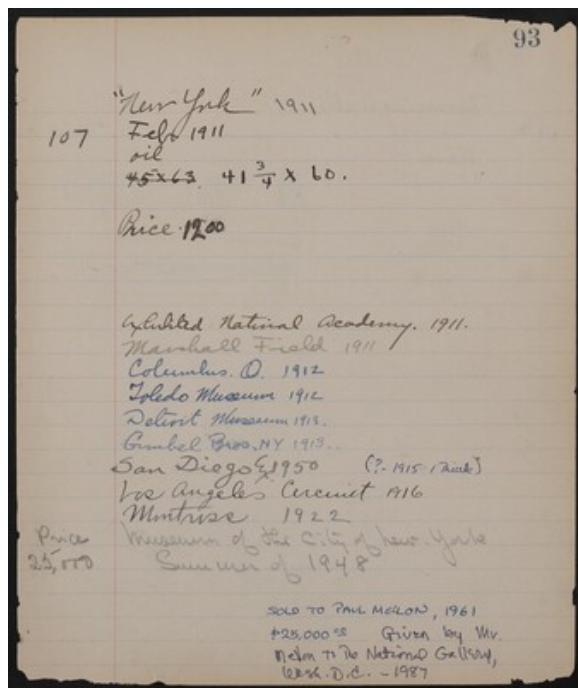 93
"New York" 1911
107 Feb. 1911
oil
45x63 41 3/4 x 60.
Price 1200
Exhibited National Academy. 1911.
Marshall Field 1911
Columbus. O. 1912
Toledo Museum 1912
Detroit Museum 1913.
Gimbel Bros. NY 1913..
San Diego 1950 (?- 1915 I think)
Los Angeles Circuit 1916
Montross 1922
Price Museum of the City of New York
25,000 Summer of 1948
SOLD TO PAUL MELLON, 1961
$25,000 00 Given by Mr.
Mellon to the National Gallery,
Wash. D.C. - 1987